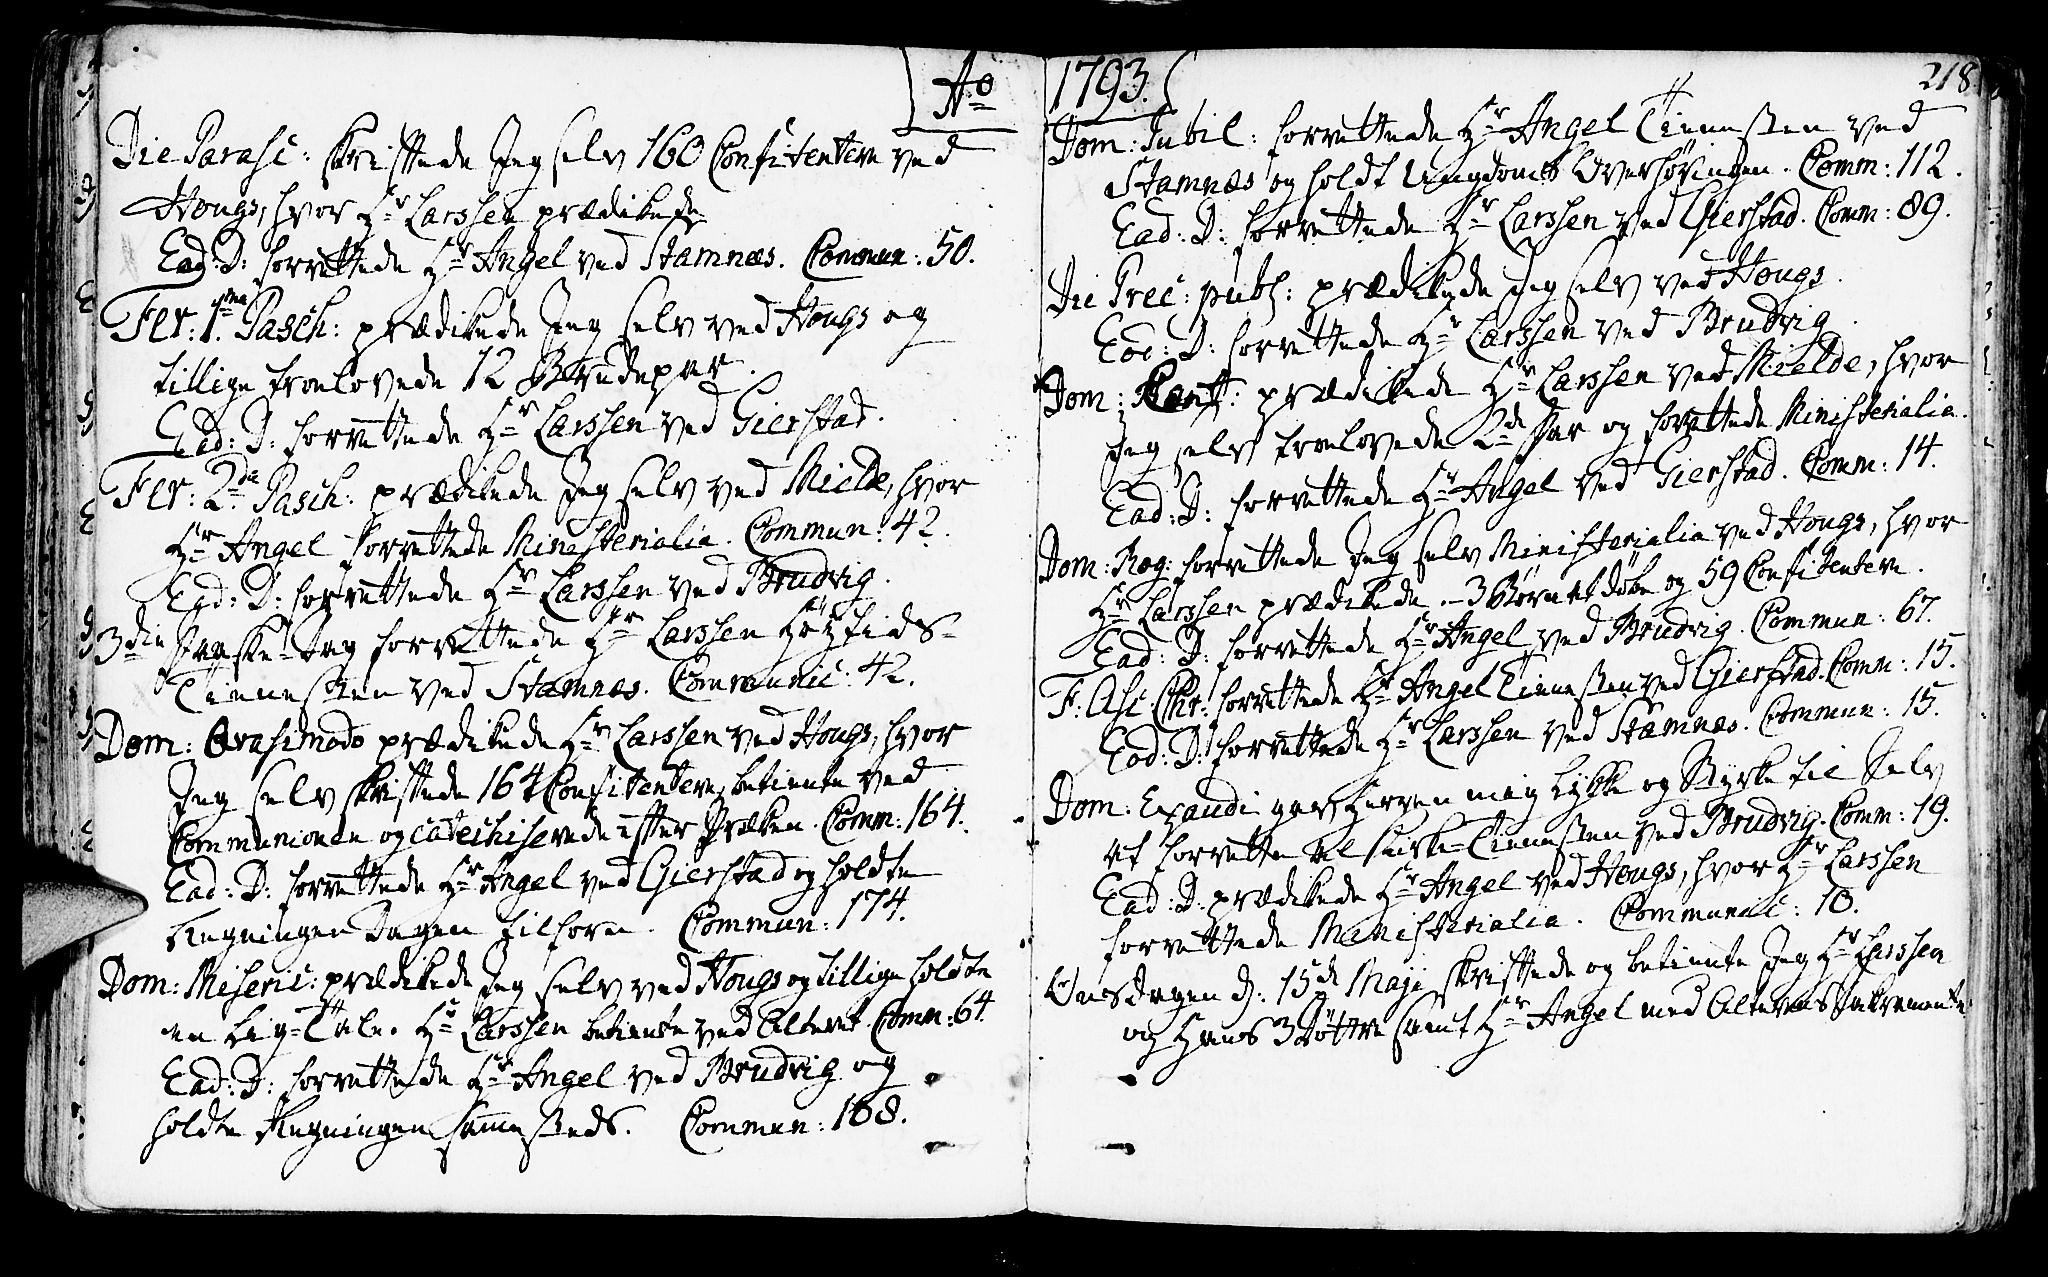 Ao
Die Parasc: skriftede Jeg selv 160 Confitentere ved
Hougs, hvor Hr Larssen prædikede
Ead: D: forrettede Hr Angel ved Stamnæs. Commun: 50.
Fer: 1ma Pasch: prædikede Jeg selv ved Hougs og
tillige troelovede 12 Brudepar.
Ead: D: forrettede Hr Larssen ved Gierstad.
Fer: 2da Pasch: prædikede Jeg selv ved Mielde, hvor
Hr Angel forrettede Ministerialia. Commun: 42.
Ead: D: forrettede Hr Larssen ved Brudvig.
3die Paaske-Dag forrettede Hr Larssen Høytids-
Tienesten ved Stamnæs. Communic: 42.
Dom: Qvasimodo prædikede Hr Larssen ved Hougs, hvor
Jeg selv skriftede 164 Confitentere, betiente ved
Communionen og catechiserede efter Præken. Comm: 164.
Ead: D: forrettede Hr Angel ved Gierstad og holdte
Regningen Dagen tilforn. Commun: 174.
Dom: Miseric: prædikede Jeg selv ved Hougs og tillige holdte
en Liig-Tale. Hr Larssen betiente ved Alteret Comm: 64.
Ead: D: forrettede Hr Angel ved Brudvig og
holdte Regningen sammesteds. Commun: 168.
1793. 218.
Dom: Jubil: forrettede Hr Angel Tienesten ved
Stamnæs og holdt Ungdoms Overhøringen. Comm: 112.
Ead: D: forrettede Hr Larssen ved Gierstad. Comm: 89.
Die Prec: publ: prædikede Jeg selv ved Hougs.
Eod: D: forrettede Hr Larssen ved Brudvig.
Dom: Cant: prædikede Hr Larssen ved Mielde, hvor
Jeg selv troelovede 2de Par og forrettede Ministerialia.
Ead: D: forrettede Hr Angel ved Gierstad. Comm: 14.
Dom: Rog: forrettede Jeg selv Ministerialia ved Hougs, hvor
Hr Larssen prædikede. - 3 Børn at døbe og 59 Confitentere.
Ead: D: forrettede Hr Angel ved Brudvig. Commun: 67.
F: Asc: Chr: forrettede Hr Angel Tienesten ved Gierstad. Comm: 15.
Eod: D: forrettede Hr Larssen ved Stamnæs. Commun: 15.
Dom: Exaudi gav Herren mig Lykke og Styrke til Selv
at forrette al Kirke-Tienesten ved Brudvig. Comm: 19.
Ead: D: prædikede Hr Angel ved Hougs, hvor Hr Larssen
forrettede Ministerialia. Communic: 10.
Onsdagen d: 15de Maji skriftede og betiente Jeg Hr Larssen
og Hans 3 Døttre samt Hr Angel med Alterens Sakramente